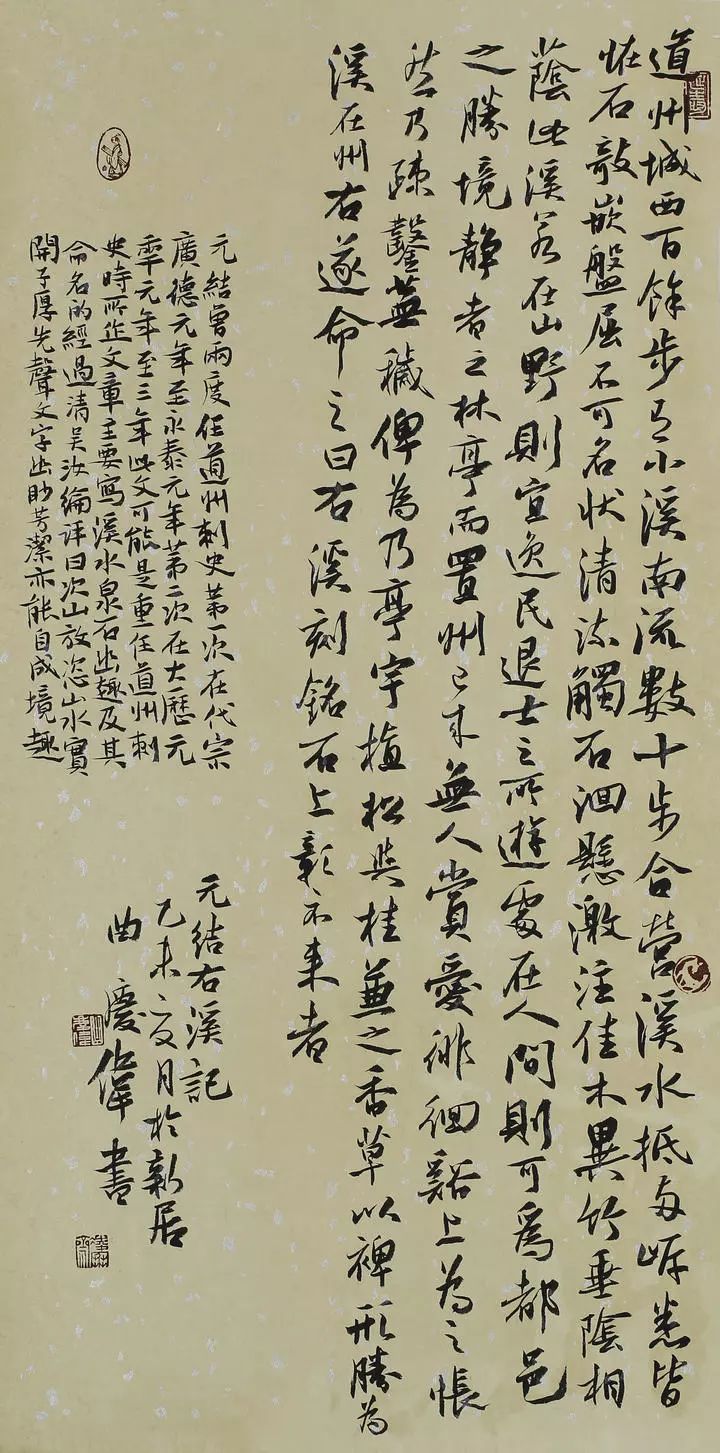 道州城西百餘步有小溪南流數十步合營溪水抵兩岸悉皆
恠石敧嵌盤屈不可名狀清流觸石洄懸激注佳木異竹垂陰相
蔭此溪若在山野則宜逸民退士之所遊處在人間則可為都邑
之勝境靜者之林亭而置州已來無人賞愛徘徊谿上為之悵
然乃疎鑿蕪穢俾為乃亭宇植松與桂兼之香草以裨形勝為
溪在州右遂命之曰右溪刻銘石上彰示來者
元結曾兩度任道州刺史第一次在代宗
廣德元年至永泰元年第二次在大歷元
年元年至三年此文可能是重任道州刺
史時所作文章主要寫溪水泉石幽趣及其
命名的經過清吳汝綸評曰次山放恣山水實
開子厚先聲文字幽眇芳潔亦能自成境趣
元結右溪記
乙未夏月於新居
曲慶偉書